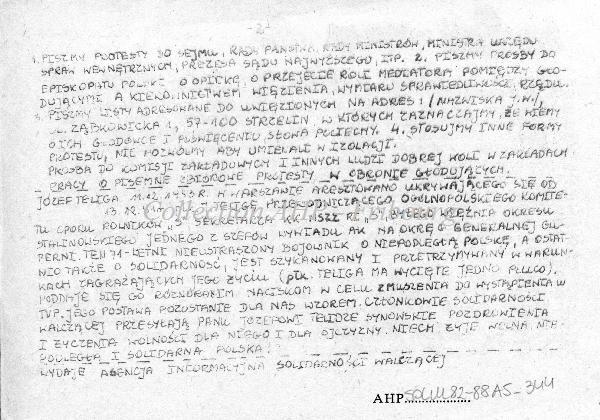 -2-
1. PISZMY PROTESTY DO SEJMU, RADY PAŃSTWA, RADY MINISTRÓW, MINISTRA URZĘDU
SPRAW WEWNĘTRZNYCH, PREZESA SĄDU NAJWYŻSZEGO, ITP. 2. PISZMY PROŚBY DO
EPISKOPATU POLSKI O OPIEKĘ, O PRZEJĘCIE ROLI MEDIATORA POMIĘDZY GŁO-
DUJĄCYMI A KIEROWNICTWEM WIĘZIENIA, WYMIARU SPRAWIEDLIWOŚCI, RZĄDU.
3. PISZMY LISTY ADRESOWANE DO UWIĘZIONYCH NA ADRES: /NAZWISKA J.W./,
UL. ZĄBKOWICKA 1, 57-100 STRZELIN, W KTÓRYCH ZAZNACZAJMY, ŻE WIEMY
O ICH GŁODÓWCE I POŚWIĘCENIU, SŁOWA POCIECHY. 4. STOSUJMY INNE FORMY
PROTESTU, NIE POZWÓLMY ABY UMIERALI W IZOLACJI.
PROŚBA DO KOMISJI ZAKŁADOWYCH I INNYCH LUDZI DOBREJ WOLI W ZAKŁADACH
PRACY O PISEMNE ZBIOROWE PROTESTY W OBRONIE GŁODUJĄCYCH.
JÓZEF TELIGA W WARSZAWIE ARESZTOWANO UKRYWAJĄCEGO SIĘ OD
13.12. TELIGĘ, PRZEWODNICZĄCEGO OGÓLNOPOLSKIEGO KOMITE-
TU OPORU ROLNIKÓW, SEKRETARZA NSZZ RI, BYŁEGO WIĘŹNIA OKRESU
STALINOWSKIEGO JEDNEGO Z SZEFÓW WYWIADU AK NA OKRĘG GENERALNEJ GU-
BERNI. TEN 71-LETNI NIEUSTRASZONY BOJOWNIK O NIEPODLEGŁĄ POLSKĘ, A OSTAT-
NIO TAKŻE O SOLIDARNOŚĆ, JEST SZYKANOWANY I PRZETRZYMYWANY W WARUN-
KACH ZAGRAŻAJĄCYCH JEGO ŻYCIU (PŁK. TELIGA MA WYCIĘTE JEDNO PŁUCO).
PODDAJE SIĘ GO RÓŻNORAKIM NACISKOM W CELU ZMUSZENIA DO WYSTĄPIENIA W
TVP. JEGO POSTAWA POZOSTANIE DLA NAS WZOREM. CZŁONKOWIE SOLIDARNOŚCI
WALCZĄCEJ PRZESYŁAJĄ PANU JÓZEFOWI TELIDZE SYNOWSKIE POZDROWIENIA
I ŻYCZENIA WOLNOŚCI DLA NIEGO I DLA OJCZYZNY. NIECH ŻYJE WOLNA, NIE-
PODLEGŁA I SOLIDARNA POLSKA!
WYDAJE AGENCJA INFORMACYJNA SOLIDARNOŚCI WALCZĄCEJ
AHP